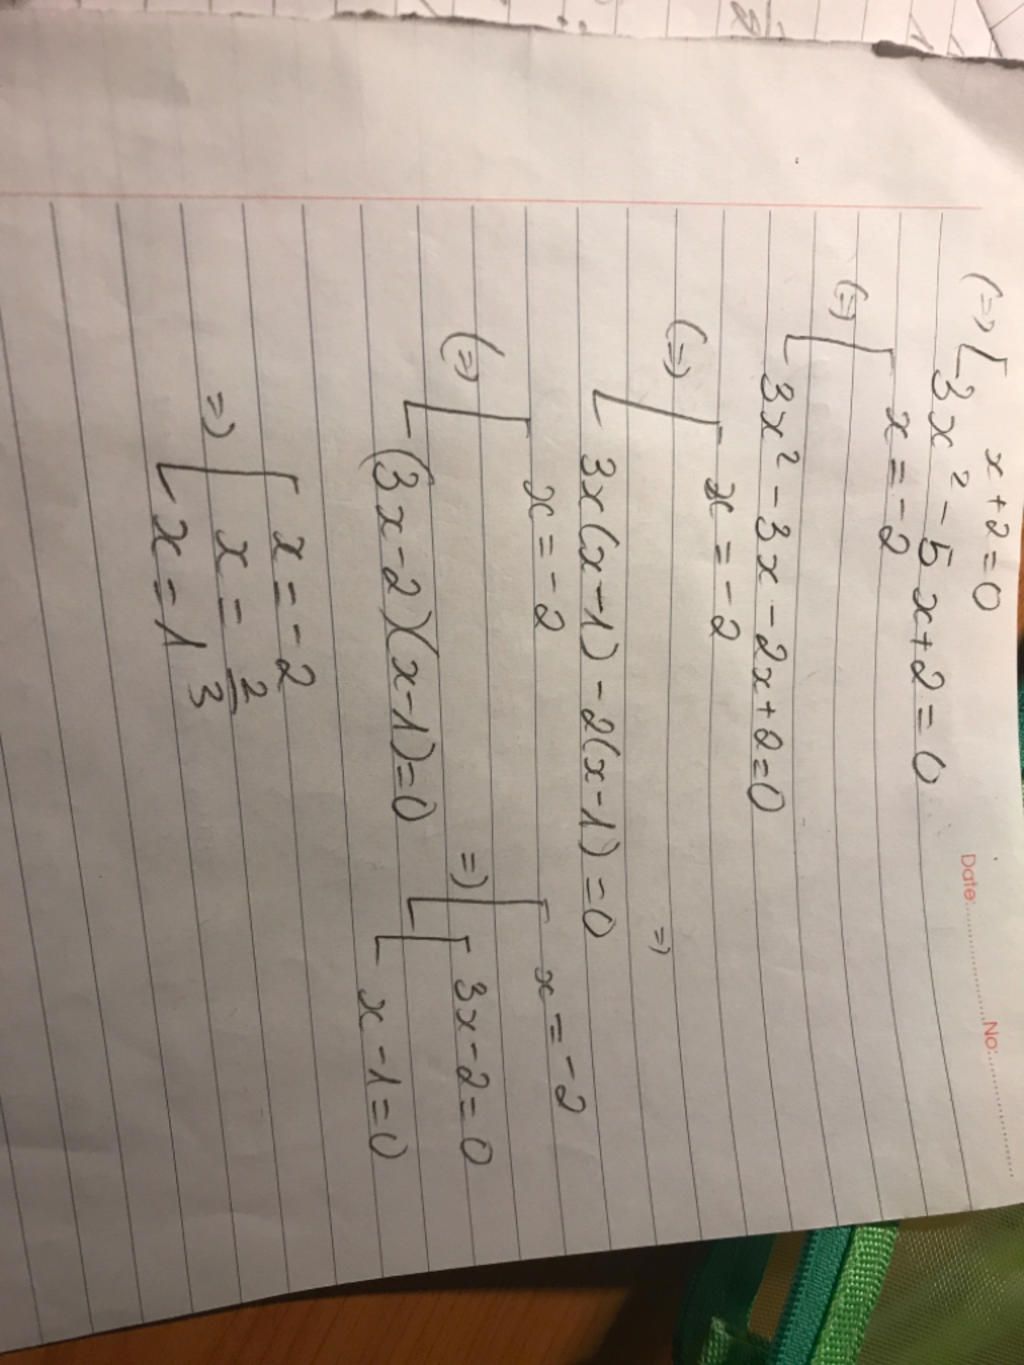 Date:.................No:.................
x+2=0
(=) [ 3x² - 5x+2=0
(=) [ x=-2
3x² - 3x - 2x+2=0
(=) [ x = -2
3x(x-1) - 2(x-1) =0 =)
(=) [ x=-2
(3x-2)(x-1)=0
=) [ x=-2
[ 3x-2=0
x-1=0
=) [ x=-2
x= 2/3
x=1